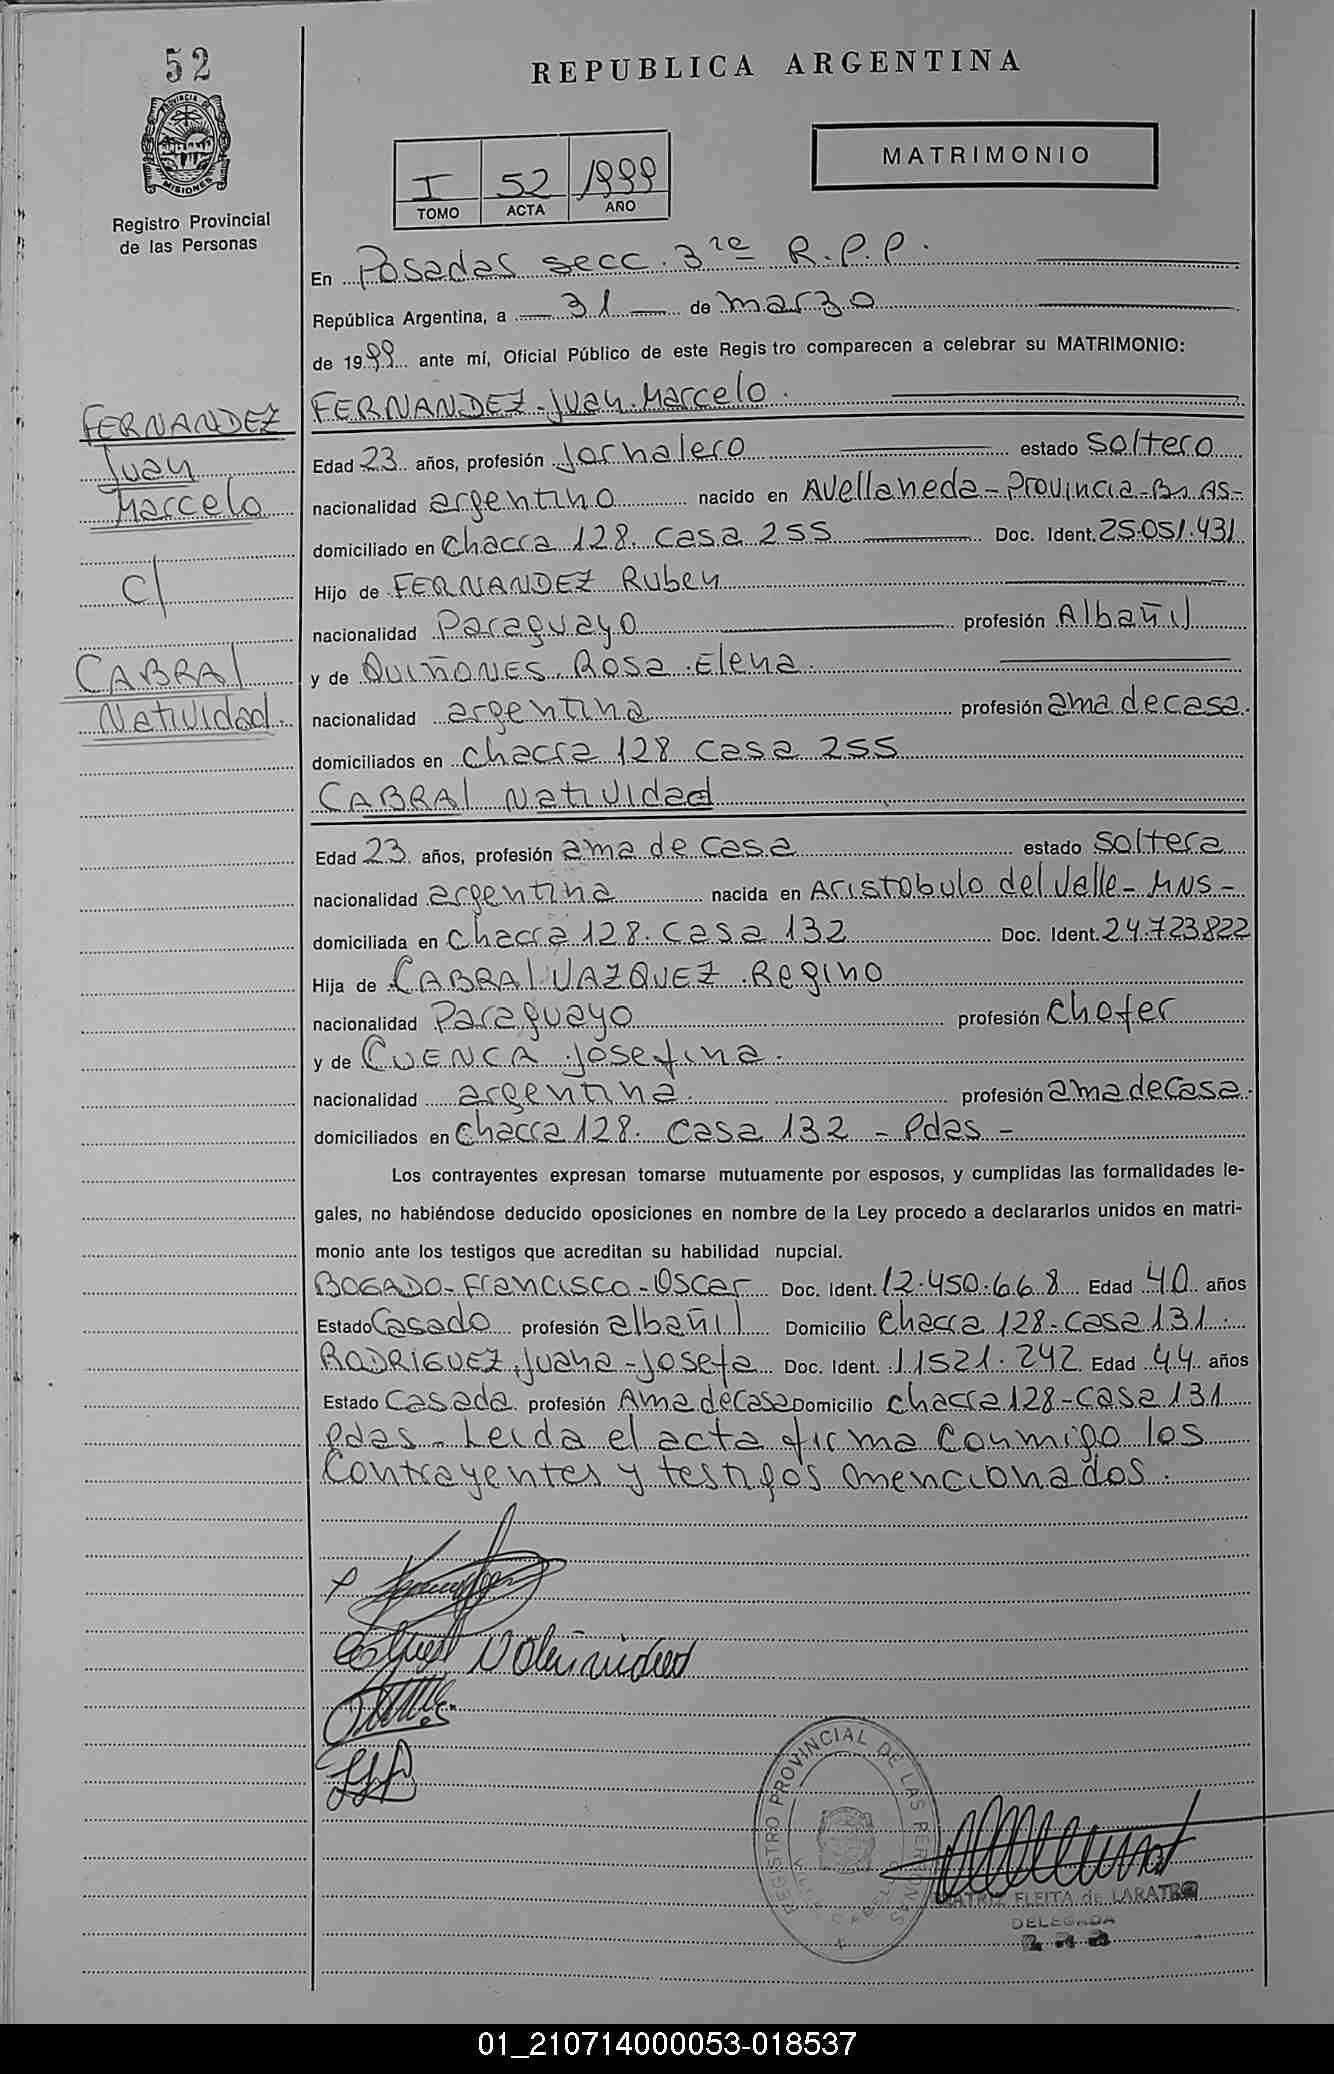 52
PROVINCIA DE
MISIONES
Registro Provincial
de las Personas
REPUBLICA ARGENTINA
MATRIMONIO
I 52 1999
TOMO ACTA AÑO
En Posadas secc. 3ra R.P.P.
República Argentina, a 31 de marzo
de 1999 ante mí, Oficial Público de este Registro comparecen a celebrar su MATRIMONIO:
FERNANDEZ
Juan
Marcelo
c/
CABRAL
Natividad
FERNANDEZ - Juan Marcelo.
Edad 23 años, profesión Jornalero estado Soltero
nacionalidad argentino nacido en Avellaneda - Provincia - Bs. AS -
domiciliado en Chacra 128. Casa 255 Doc. Ident. 25.051.431
Hijo de FERNANDEZ Ruben
nacionalidad Paraguayo profesión Albañil
y de QUIÑONES, Rosa Elena.
nacionalidad argentina profesión ama de casa.
domiciliados en Chacra 128 Casa 255
CABRAL Natividad
Edad 23 años, profesión ama de casa estado Soltera
nacionalidad argentina nacida en Aristobulo del Valle - MNS -
domiciliada en Chacra 128. Casa 132 Doc. Ident. 24.723.822
Hija de CABRAL VAZQUEZ Regino
nacionalidad Paraguayo profesión Chofer
y de CUENCA Josefina.
nacionalidad argentina profesión ama de casa.
domiciliados en Chacra 128. Casa 132 - Pdas -
Los contrayentes expresan tomarse mutuamente por esposos, y cumplidas las formalidades le-
gales, no habiéndose deducido oposiciones en nombre de la Ley procedo a declararlos unidos en matri-
monio ante los testigos que acreditan su habilidad nupcial.
BOGADO - Francisco - Oscar Doc. Ident. 12.450.668 Edad 40 años
Estado Casado profesión albañil Domicilio Chacra 128 - Casa 131.
RODRIGUEZ, Juana - Josefa Doc. Ident. 11521.242 Edad 44 años
Estado Casada profesión Ama de Casa Domicilio Chacra 128 - Casa 131
Pdas - Leida el acta firma conmigo los
Contrayentes y testigos mencionados.
REGISTRO PROVINCIAL DE LAS PERSONAS
FLEITA de LARATRO
DELEGADA
01_210714000053-018537